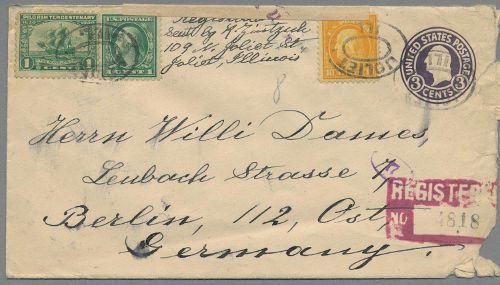 PILGRIM TERCENTENARY
1 CENTS 1
U.S. POSTAGE
1 CENT 1
Registered
Sent by
109 N. Joliet St
Joliet, Illinois
10 10
JOLIET
UNITED STATES POSTAGE
3 CENTS 3
8
Herrn Willi Dames,
Lenbach Strasse 7,
Berlin, 112, Ost
Germany.
REGISTERED
NO 4818